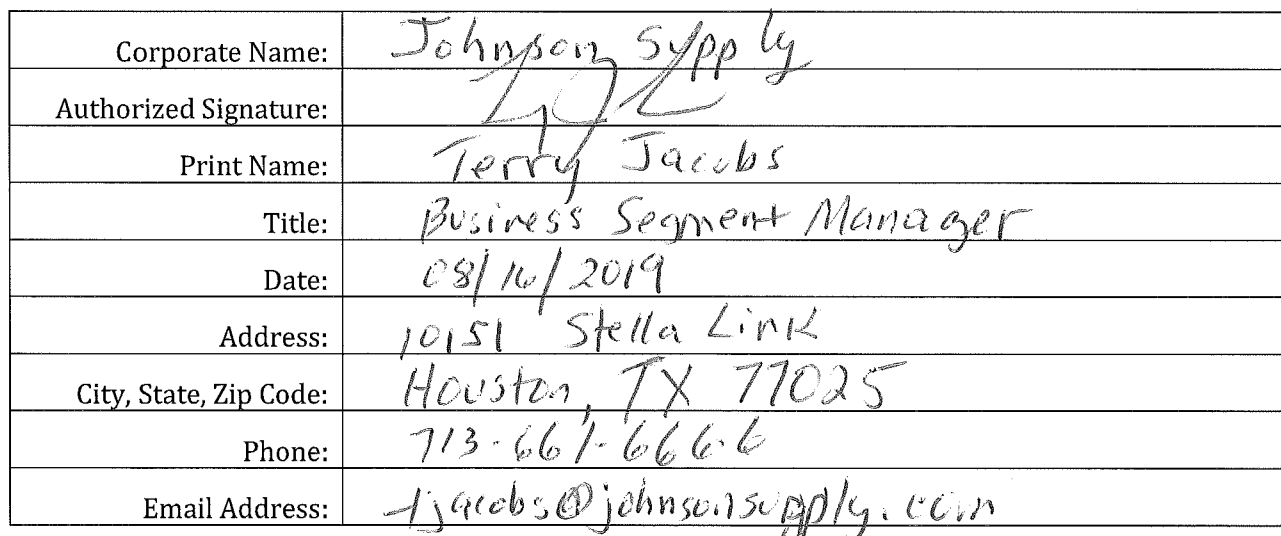 Corporate Name: Johnson Supply
Authorized Signature:
Print Name: Terry Jacobs
Title: Business Segment Manager
Date: 08/16/2019
Address: 10151 Stella Link
City, State, Zip Code: Houston, TX 77025
Phone: 713-661-6666
Email Address: tjacobs@johnsonsupply.com